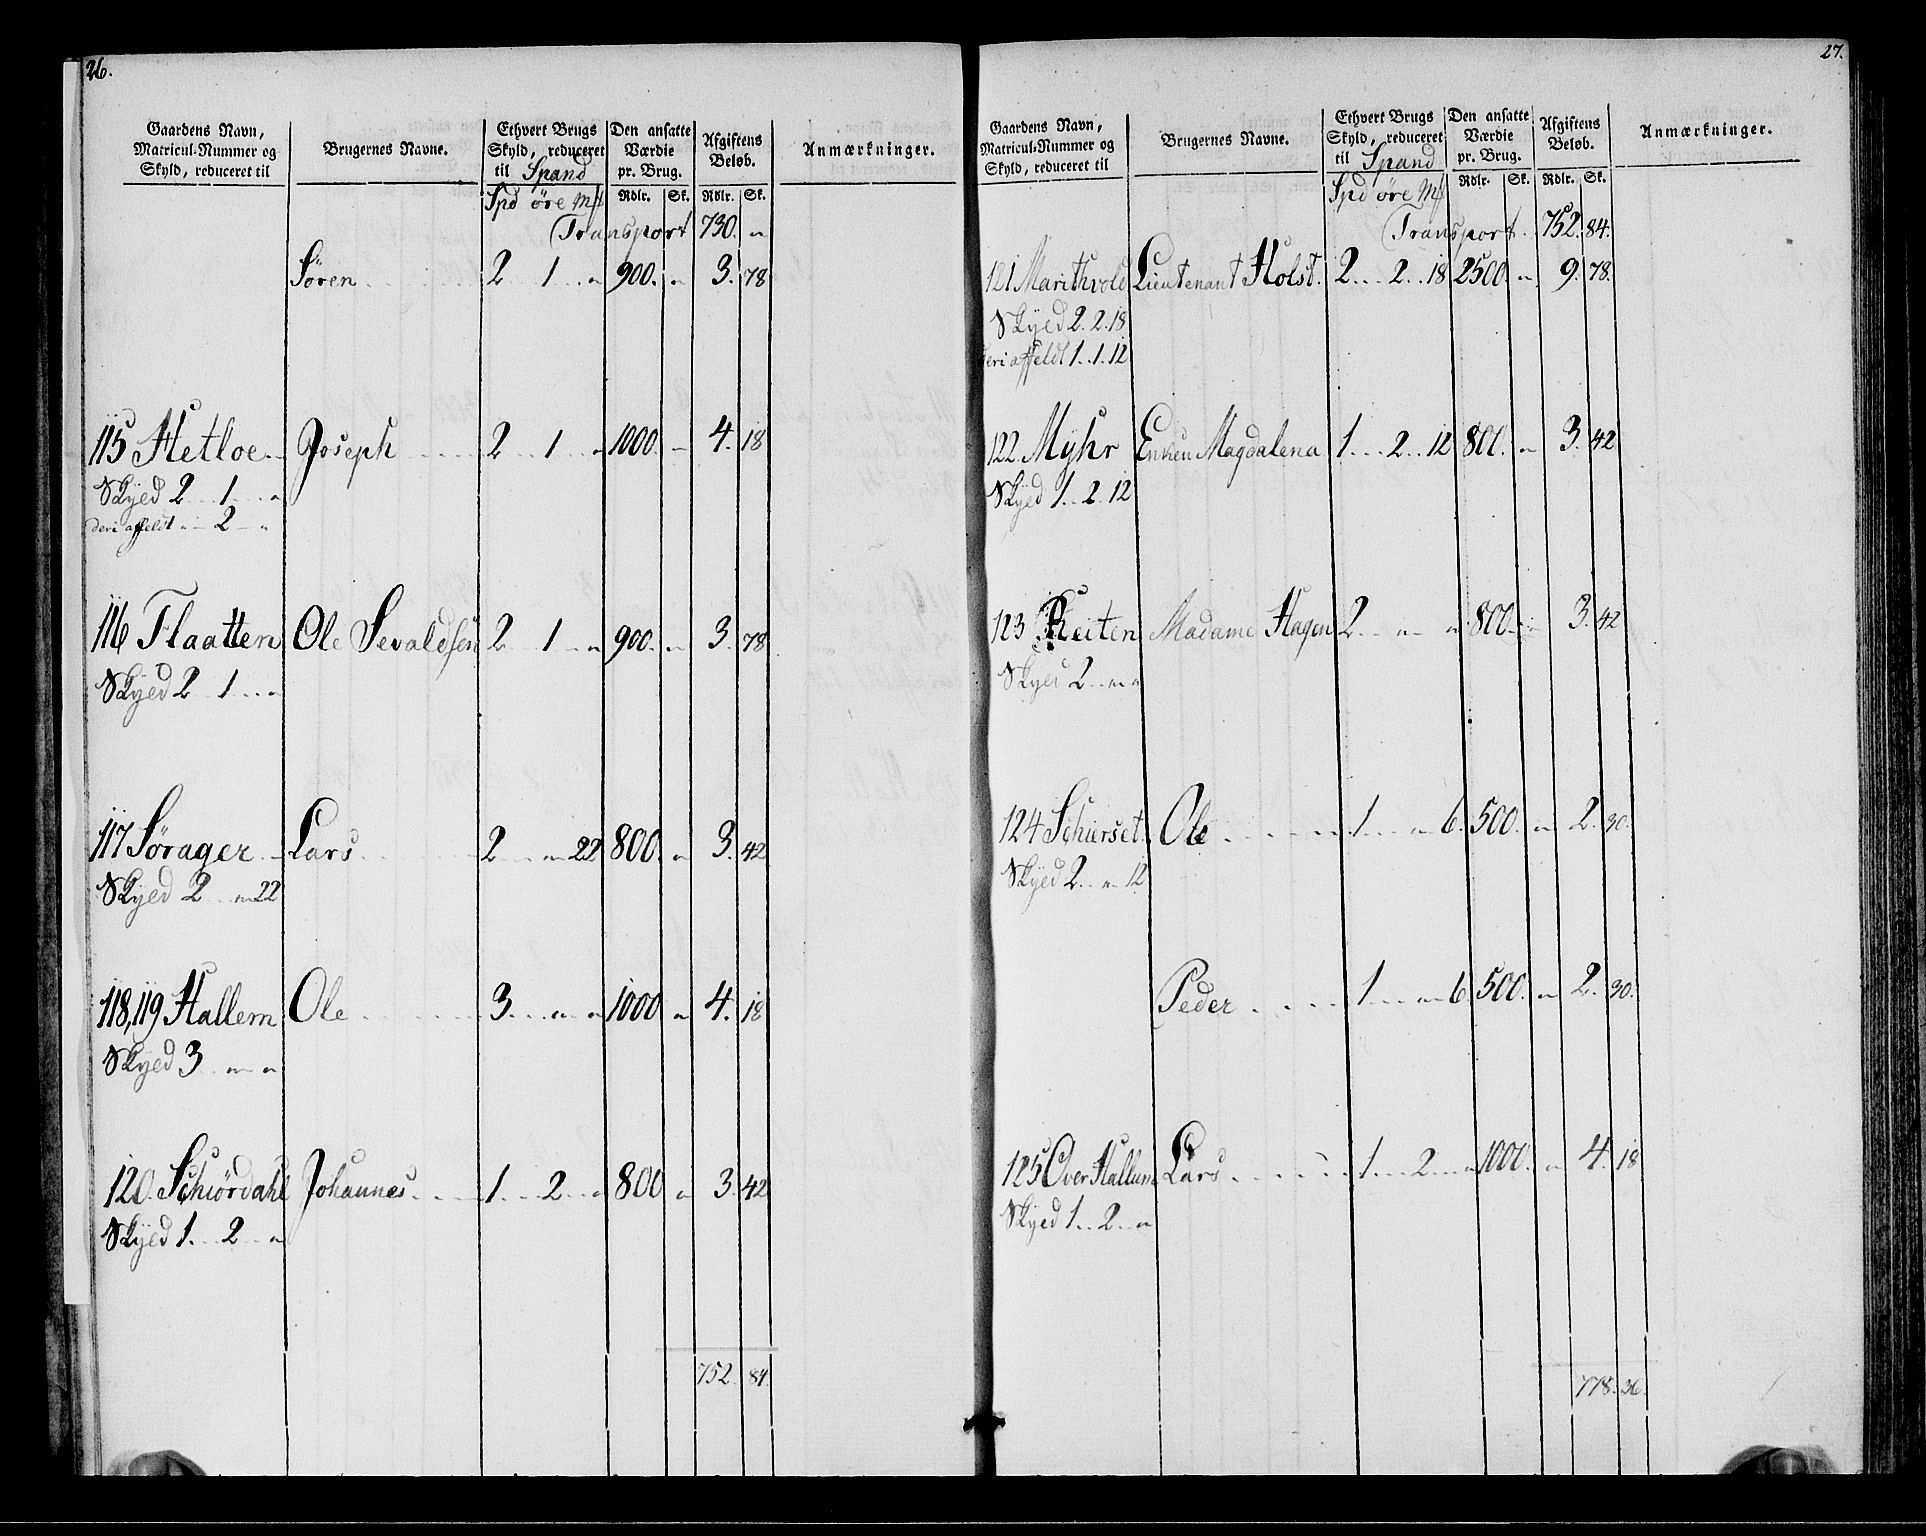 26.
Gaardens Navn, Matricul-Nummer og Skyld, reduceret til | Brugernes Navne. | Ethvert Brugs Skyld, reduceret til Spand | Den ansatte Værdie pr. Brug. | Afgiftens Beløb. | Anmærkninger.
Spd øre Mk | Rdlr. | Sk. | Rdlr. | Sk.
Transport 730. "
Søren 2 1 " 900. " 3. 78
115 Hetloe Joseph 2 1 " 1000. " 4. 18
Skyld 2 1 "
deri affeldt " 2 "
116 Flaatten Ole Sevaldsen 2 1 " 900. " 3. 78
Skyld 2 1 "
117 Sørager Lars 2 " 22 800. " 3. 42
Skyld 2 " 22
118, 119 Hallem Ole 3 " " 1000 " 4. 18
Skyld 3 " "
120. Schiørdahl Johannes 1 2 " 800 " 3. 42
Skyld 1 2 "
752. 84.
27.
Gaardens Navn, Matricul-Nummer og Skyld, reduceret til | Brugernes Navne. | Ethvert Brugs Skyld, reduceret til Spand | Den ansatte Værdie pr. Brug. | Afgiftens Beløb. | Anmærkninger.
Spd øre Mk | Rdlr. | Sk. | Rdlr. | Sk.
Transport. 752. 84.
121 Marithvold Lieutenant Holst. 2 2 18 2500. " 9. 78.
Skyld 2. 2. 18
deri affeldt 1 1 12
122. Myhr Enken Magdalena 1 2 12 800. " 3. 42
Skyld 1 2 12
123 Reiten Madame Hagen 2 " " 800. " 3. 42
Skyld 2 " "
124 Schierset. Ole 1 " 6. 500. " 2. 30.
Skyld 2 " 12
Peder 1 " 6. 500. " 2. 30.
125 Over Hallum Lars 1 2 " 1000. " 4. 18
Skyld 1 2 "
778. 36.